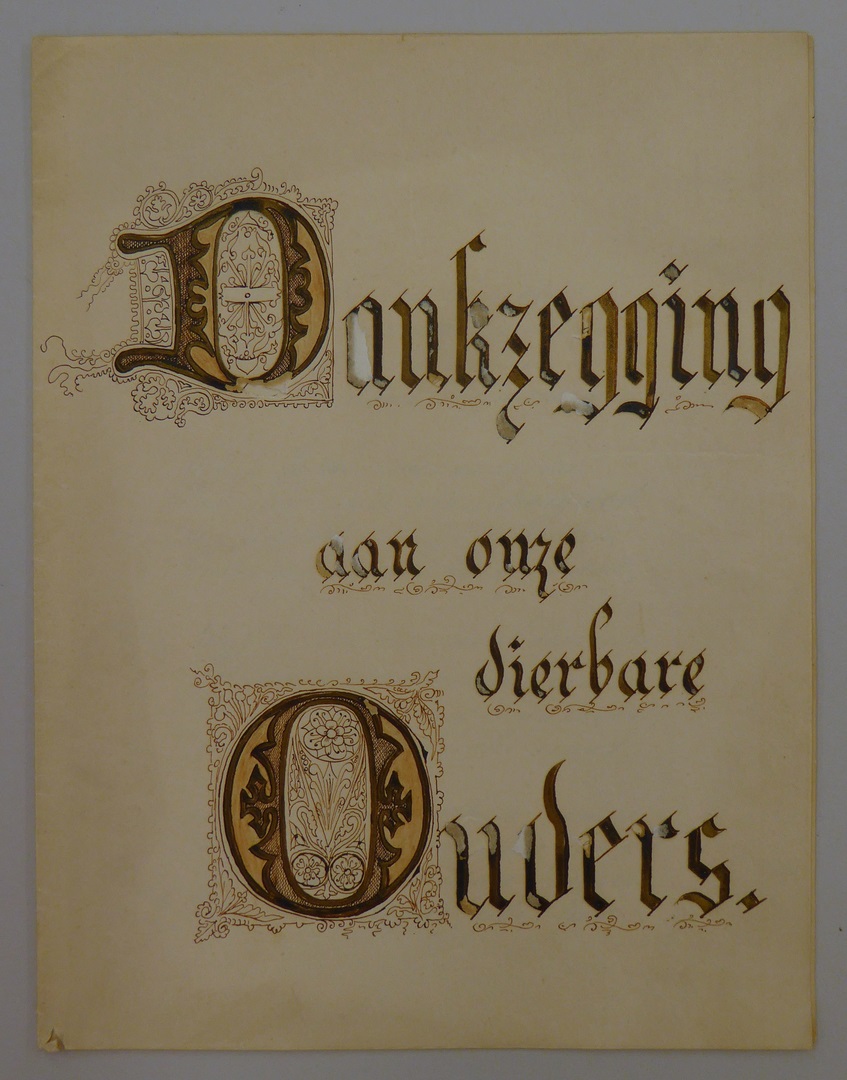 Dankzegging
aan onze
dierbare
Ouders.